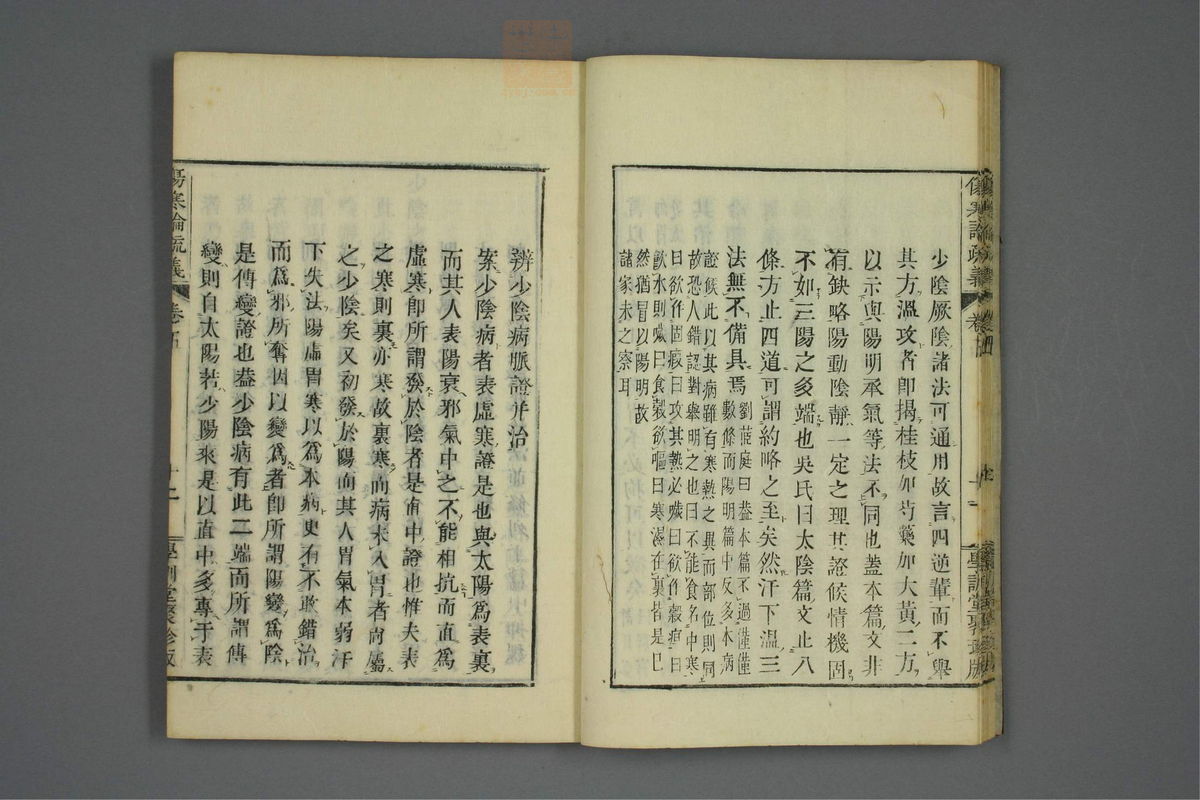 少陰厥陰諸法可通用故言四逆輩而不舉
其方溫攻者卽揭桂枝加芍藥加大黃二方
以示與陽明承氣等法不同也蓋本篇文非
有缺略陽動陰靜一定之理其證候情機固
不如三陽之多端也吳氏曰太陰篇文止八
條方止四道可謂約略之至矣然汗下溫三
法無不備具焉
劉蓝庭曰蓋本篇不過僅僅
數條而陽明篇中反多本病
證候此以其病雖有寒熱之異而部位則同
故恐人錯認對舉明之也曰不能食名中寒
曰欲作固瘕曰攻其熱必噦曰欲作穀疸曰
飲水則噦曰食穀欲嘔曰寒濕在裏皆是巳
然猶冒以陽明故
諸家未之察耳
傷寒論疏義 卷四
學訓堂聚珍版
辨少陰病脈證并治
案少陰病者表虛寒證是也與太陽爲表裏
而其人表陽衰邪氣中之不能相抗而直爲
虛寒卽所謂發於陰者是直中證也惟夫表
之寒則裏亦寒故裏寒而病未入胃者尚屬
之少陰矣又初發於陽而其人胃氣本弱汗
下失法陽虛胃寒以爲本病更有不敢錯治
而爲邪所奪因以變爲者卽所謂陽變爲陰
是傳變證也蓋少陰病有此二端而所謂傳
變則自太陽若少陽來是以直中多專于表
傷寒論疏義 卷五
學訓堂聚珍版